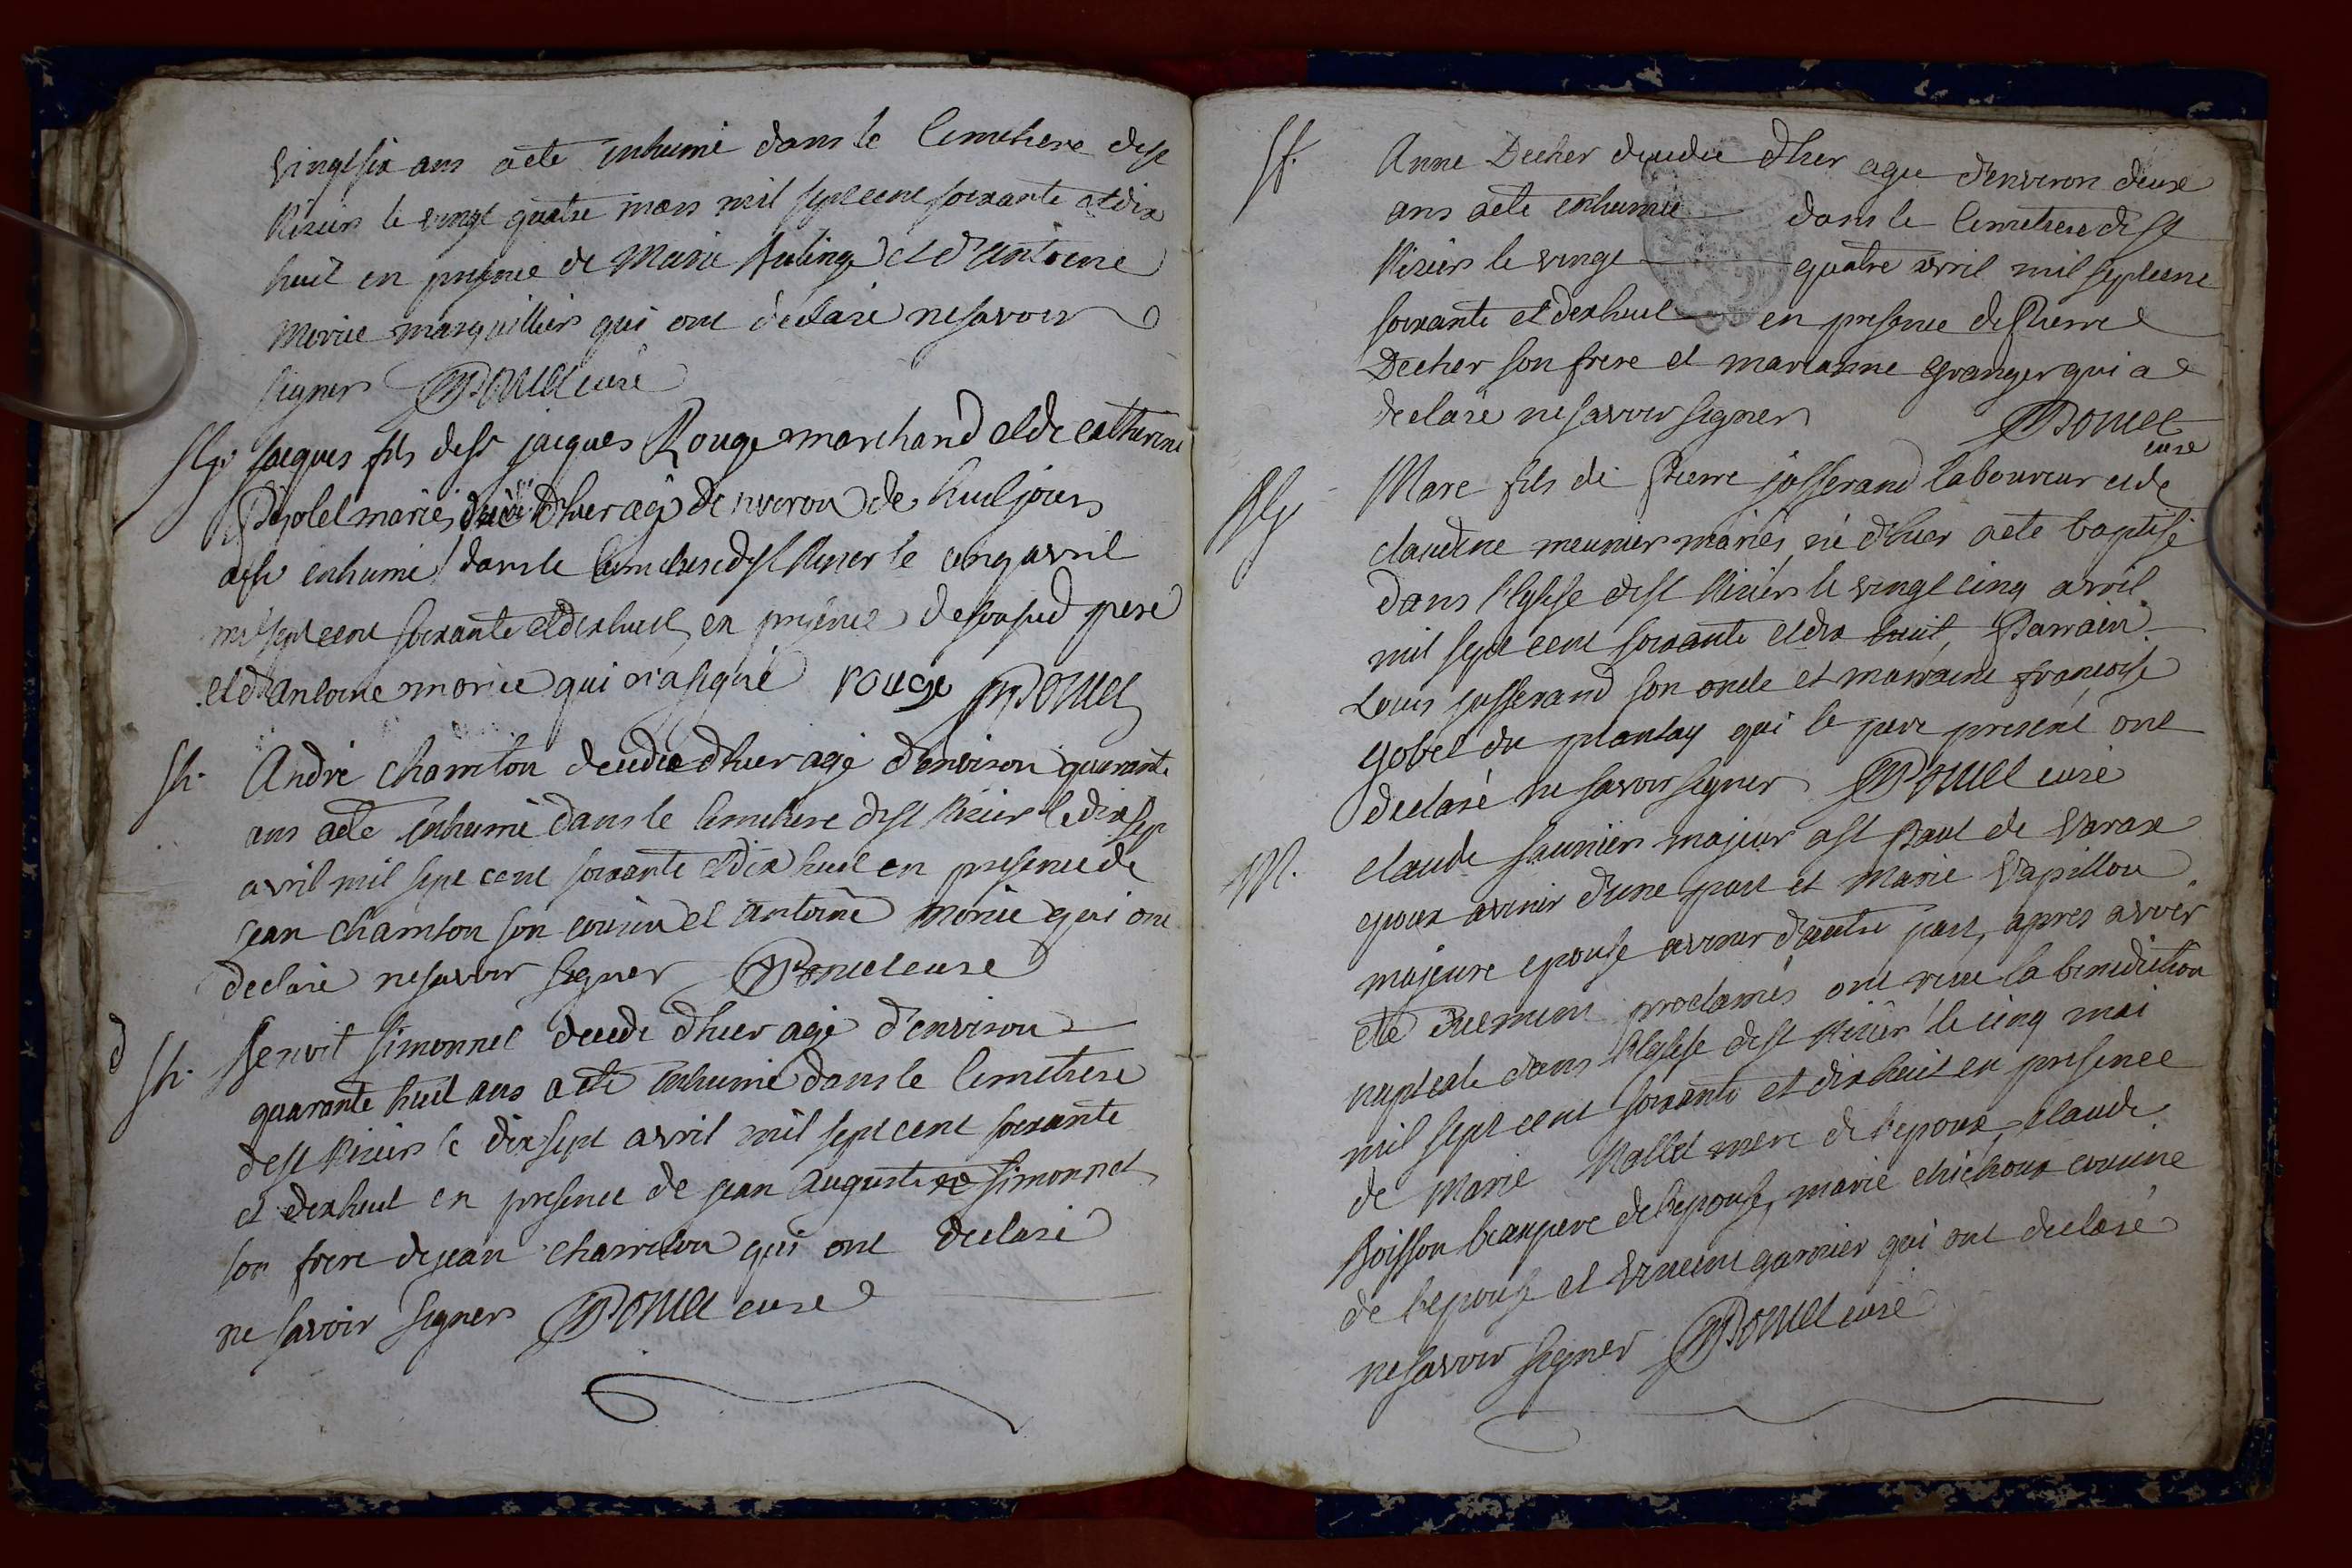 vingt six ans a ete inhumé dans le Cimetiere de st
Nizier le vingt quatre mars mil sept cent soixante et dix
huit en presence de Marie et d'antoine
Morice marguilliers qui ont déclaré ne savoir
signer Poncet curé
Sg. jacques fils de sr jacques Rouge marchand et de catherine
mariés, décédé d'hier agé d'environ de huit jours
a ete inhumé dans le Cimetiere de st Nizier le cinq avril
mil sept cent soixante et dix huit en présence de son sud pere
et d'antoine morice qui n'a signé rouge Poncet
Sh. André chamton decedé d'hier agé d'environ quarante
ans a ete inhumé dans le Cimetiere de st Nizier le dix sept
avril mil sept cent soixante et dix huit en presence de
jean chamton son cousin et antoine morice qui ont
declaré ne savoir signer Poncet curé
d
Sh. Benoit Simonnet decede d'hier agé d'environ
quarante huit ans a ete inhumé dans le Cimetiere
de st Nizier le dix sept avril mil sept cent soixante
et dix huit en presence de jean augustin Simonnet
son frere de jean chamton qui ont declaré
ne savoir signer Poncet curé
Sf. Anne Decher decedée d'hier agée d'environ deux
ans a ete inhumée dans le Cimetiere de st
Nizier le vingt quatre avril mil sept cent
soixante et dix huit en presence de Pierre
Decher son frere et marianne granger qui a
declaré ne savoir signer Poncet
curé
Bg Marc fils de Pierre josserand laboureur et de
claudine meunier mariés né d'hier a ete baptisé
dans l'Eglise de st Nizier le vingt cinq avril
mil sept cent soixante et dix huit, Parrain
Louis josserand son oncle et marraine françoise
gobet du plantay qui le pere present ont
declaré ne savoir signer Poncet curé
M. claude saunier majeur a st Paul de Varax
epoux avenir d'une part et Marie Vapillon
majeure epouse avenir d'autre part, apres avoir
ete duement proclamés ont recu la benediction
nuptiale dans l'Eglise de st Nizier le cinq mai
mil sept cent soixante et dix huit en presence
de Marie Nallet mere de l'epoux, claude
Boisson beaupere de l'epouse, marie chichoux cousine
de l'epouse et garnier qui ont declaré
ne savoir signer Poncet curé